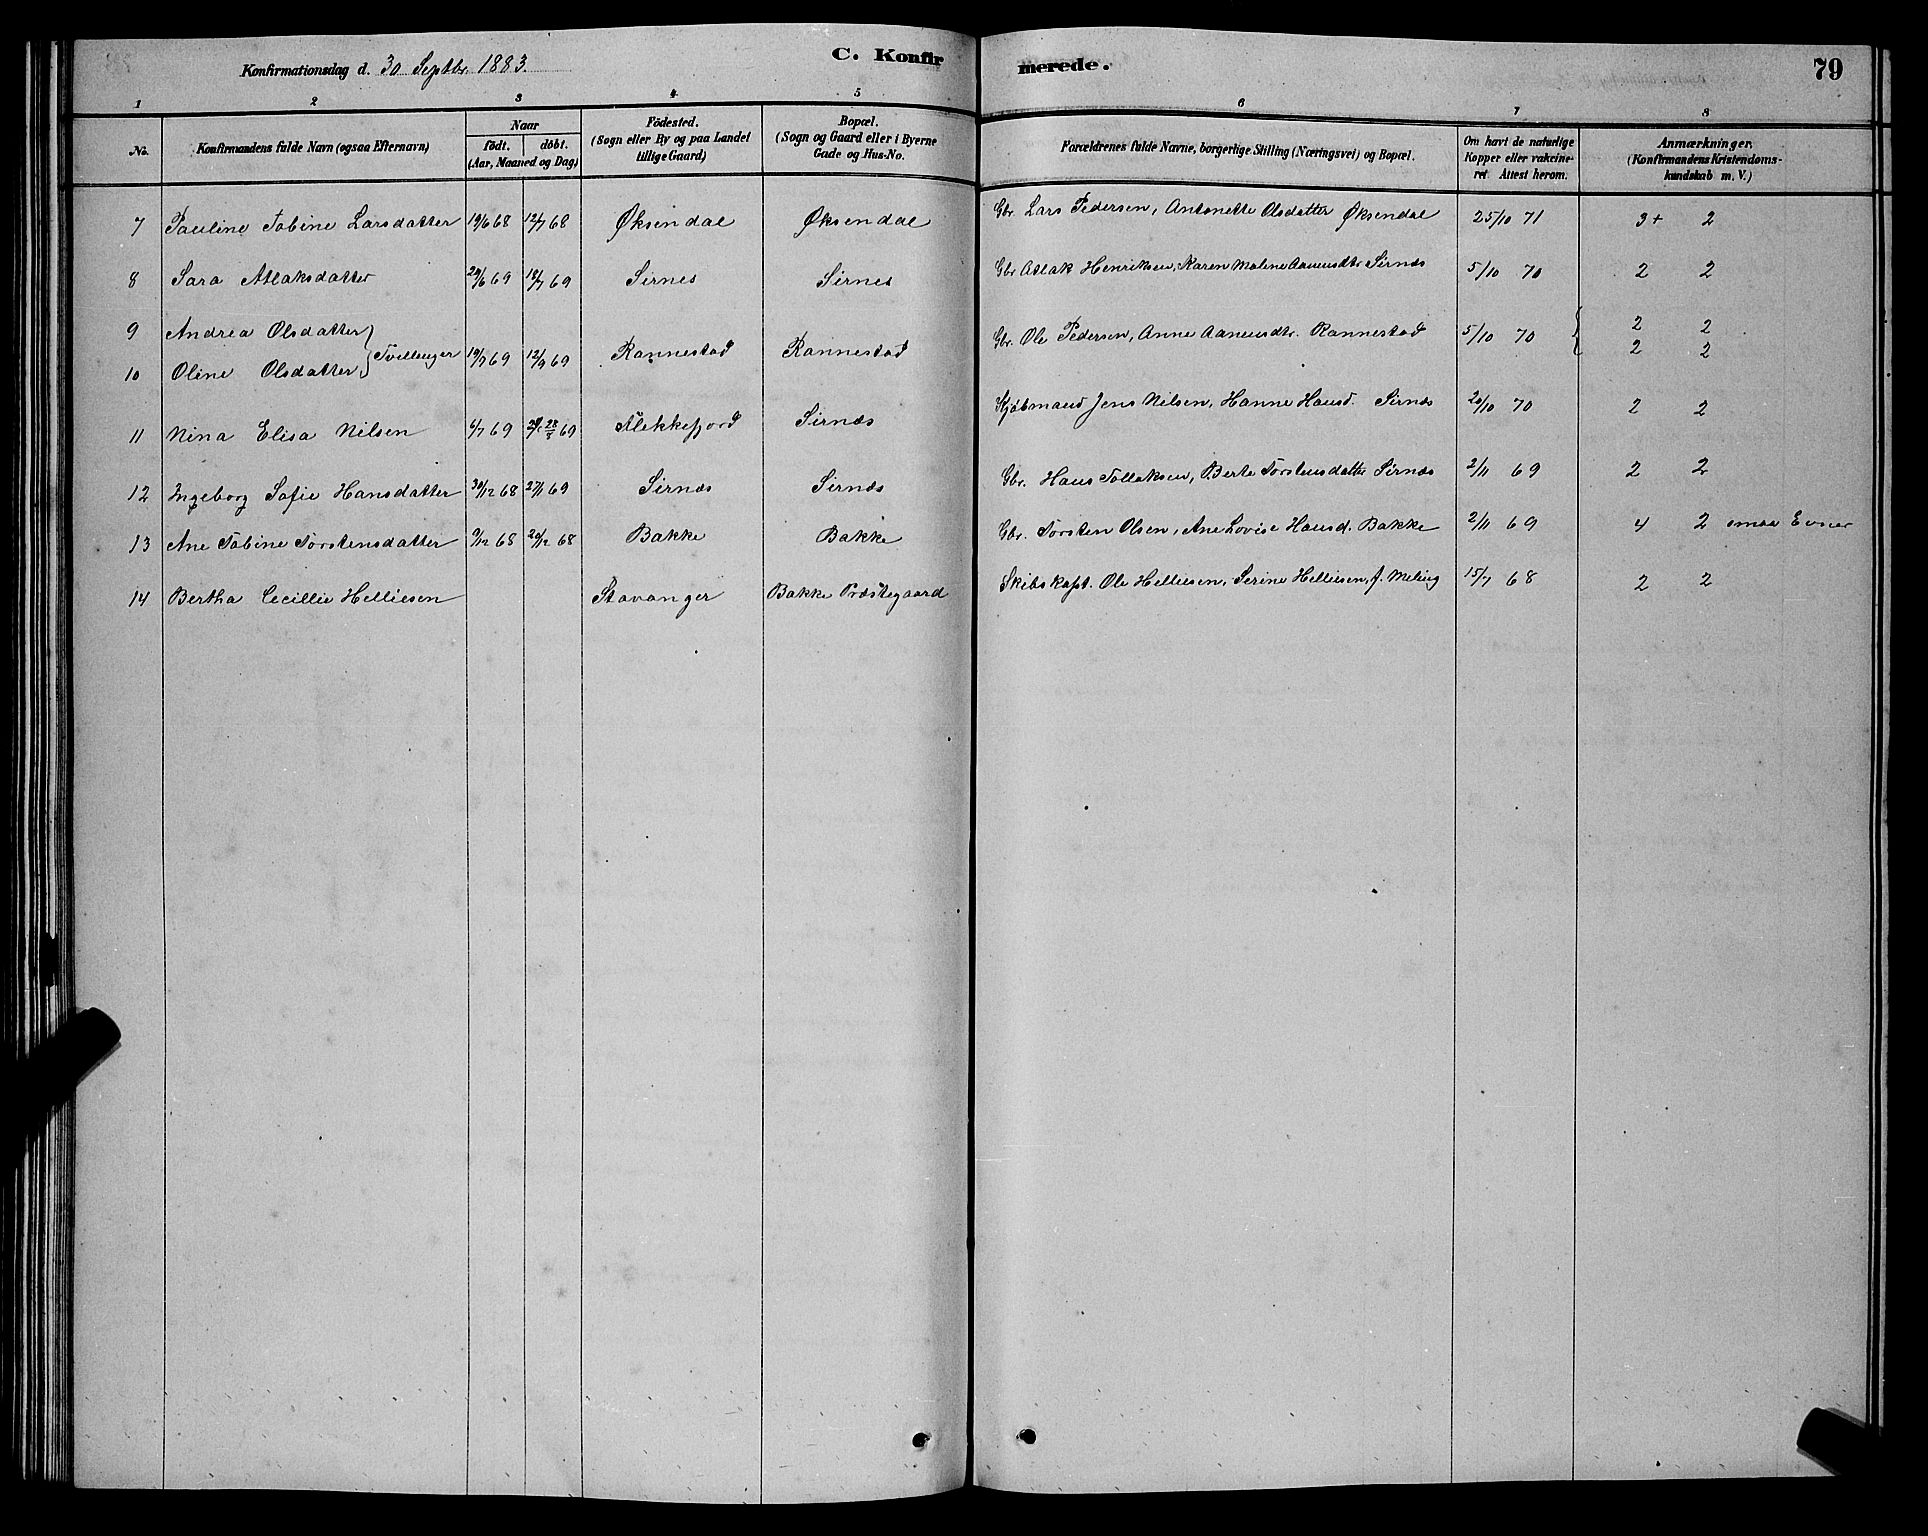 Konfirmationsdag d. 30 Septbr. 1883.
C. Konfirmerede.
79
1 2 3 4 5 6 7 8
No. Konfirmandens fulde Navn (ogsaa Efternavn) Naar födt. döbt. (Aar, Maaned og Dag) Födested. (Sogn eller By og paa Landet tillige Gaard) Bopæl. (Sogn og Gaard eller i Byerne Gade og Hus-No. Forældrenes fulde Navne, borgerlige Stilling (Næringsvei) og Bopæl. Om havt de naturlige Kopper eller vakcineret Attest herom. Anmærkninger. (Konfirmandens Kristendomskundskab m. V.)
7 Pauline Tobine Larsdatter 19/6 68 12/7 68 Øksendal Øksendal Gbr. Lars Pedersen, Antonette Olsdatter Øksendal 25/10 71 3+ 2
8 Sara Atlaksdatter 29/6 69 18/7 69 Sirnes Sirnes Gbr Atlak Henriksen, Karen Malene Aanensdtr Sirnæs 5/10 70 2 2
9 Andrea Olsdatter 2 2
10 Oline Olsdatter } Tvillinger 19/7 69 12/9 69 Rannestad Rannestad Gbr. Ole Pedersen, Anne Aanensdtr. Rannestad 5/10 70 2 2
11 Nina Elisa Nilsen 6/7 69 28/8 69 Flekkefjord Sirnæs Kjöbmand Jens Nilsen, Hanne Hansd. Sirnæs 20/10 70 2 2
12 Ingeborg Sofie Hansdatter 30/12 68 27/1 69 Sirnæs Sirnæs Gbr. Hans Tollaksen, Berte Torstensdatter Sirnæs 2/11 69 2 2
13 Ane Tobine Torstensdatter 9/12 68 20/12 68 Bakke Bakke Gbr. Torsten Olsen, Ane Lovise Hansd. Bakke 2/11 69 4 2 smaa Evner
14 Bertha Cecillie Helliesen Stavanger Bakke Præstegaard Skibskapt. Ole Helliesen, Serine Helliesen, f. Meling 15/7 68 2 2